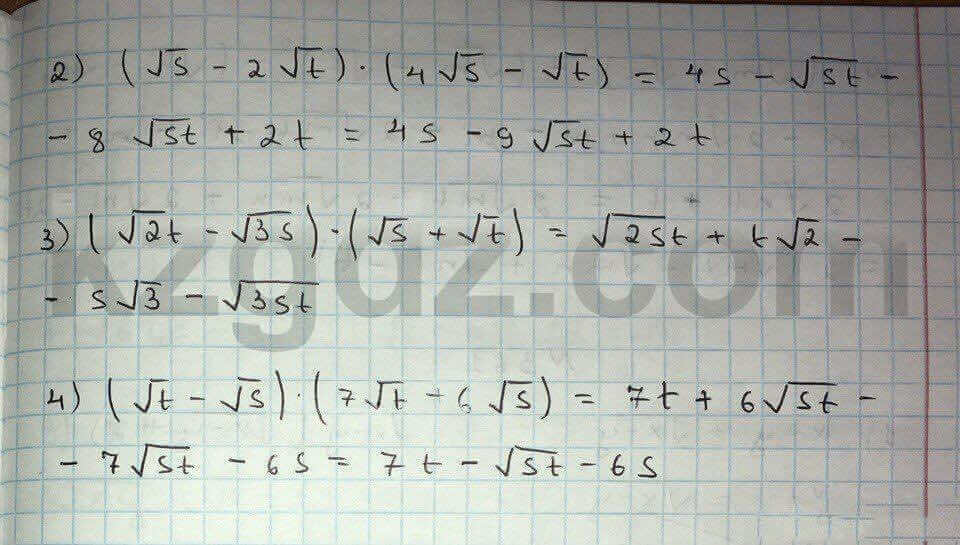 2) (√s - 2√t) · (4√s - √t) = 4s - √st -
- 8√st + 2t = 4s - 9√st + 2t
3) (√2t - √3s) · (√s + √t) = √2st + t√2 -
- s√3 - √3st
4) (√t - √s) · (7√t - 6√s) = 7t + 6√st -
- 7√st - 6s = 7t - √st - 6s
kzgdz.com